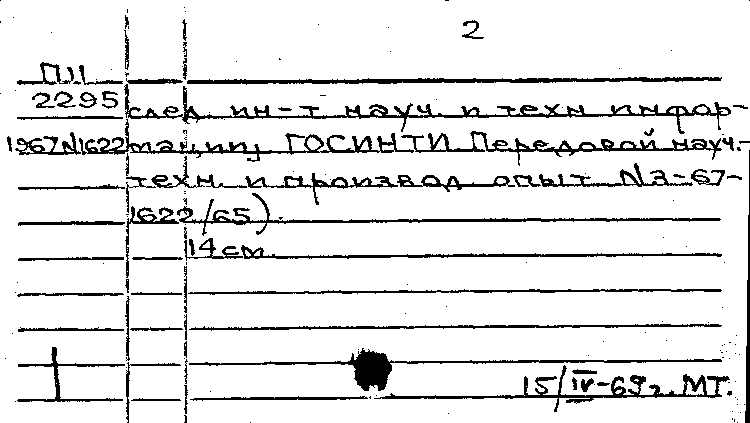 2
ПII
2295 след. ин-т науч. и техн инфор-
1967N1622 мации, ГОСИНТИ Передовой науч.-
техн. и производ опыт N3-67-
1622/65).
14 см.
15/IV-69г. МТ.